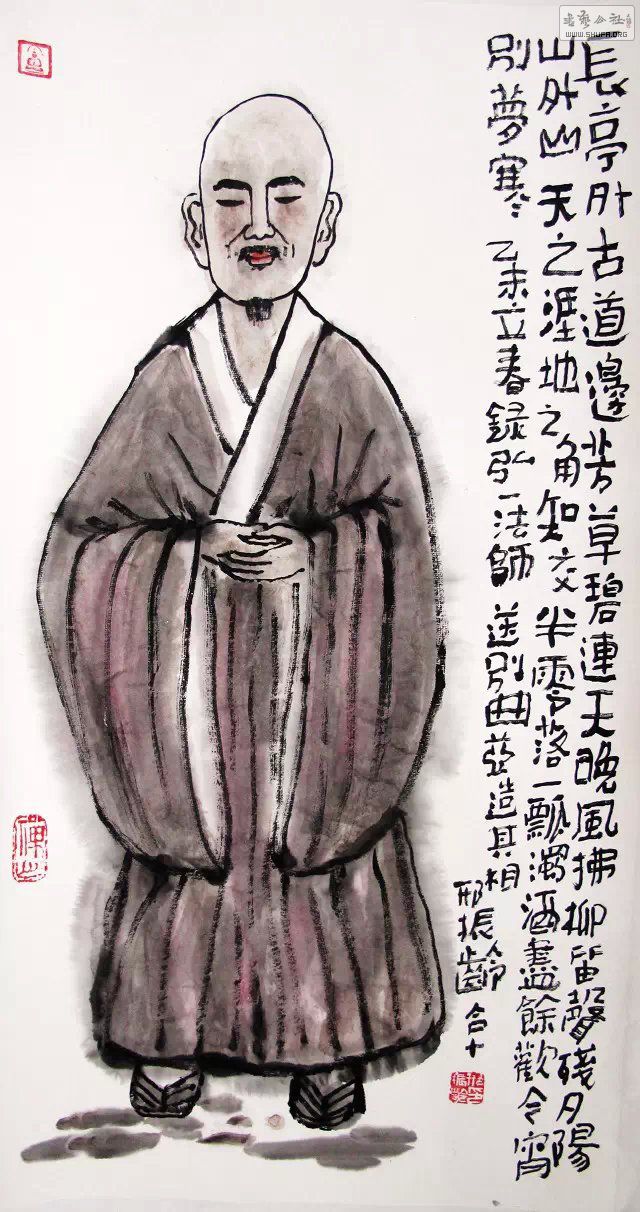 長亭外古道邊芳草碧連天晚風拂柳笛聲殘夕陽
山外山天之涯地之角知交半零落一瓢濁酒盡餘歡今宵
別夢寒 乙未立春錄弘一法師送別曲並造其相
邢振齡合十
書艺公社
WWW.SHUFA.ORG